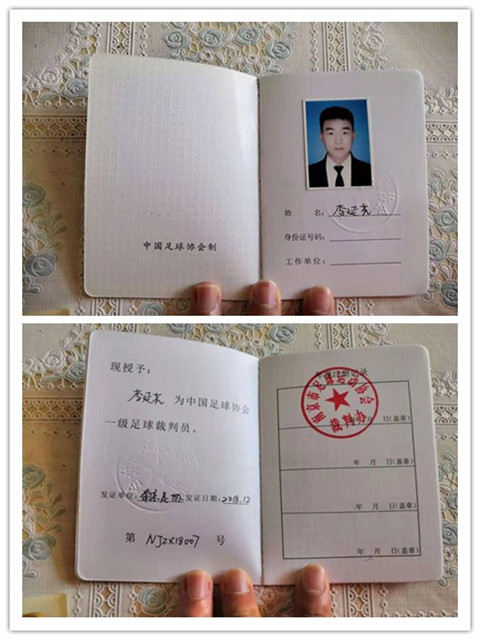 中国足球协会制
姓 名：李延光
身份证号码：
工作单位：
现授予：
李延光 为中国足球协会
一级足球裁判员。
发证单位： 发证日期：2018.12
第 NJZX18007 号
年度注册记录
南京市足球运动协会
裁判办
年 月 日(盖章)
年 月 日(盖章)
年 月 日(盖章)
年 月 日(盖章)